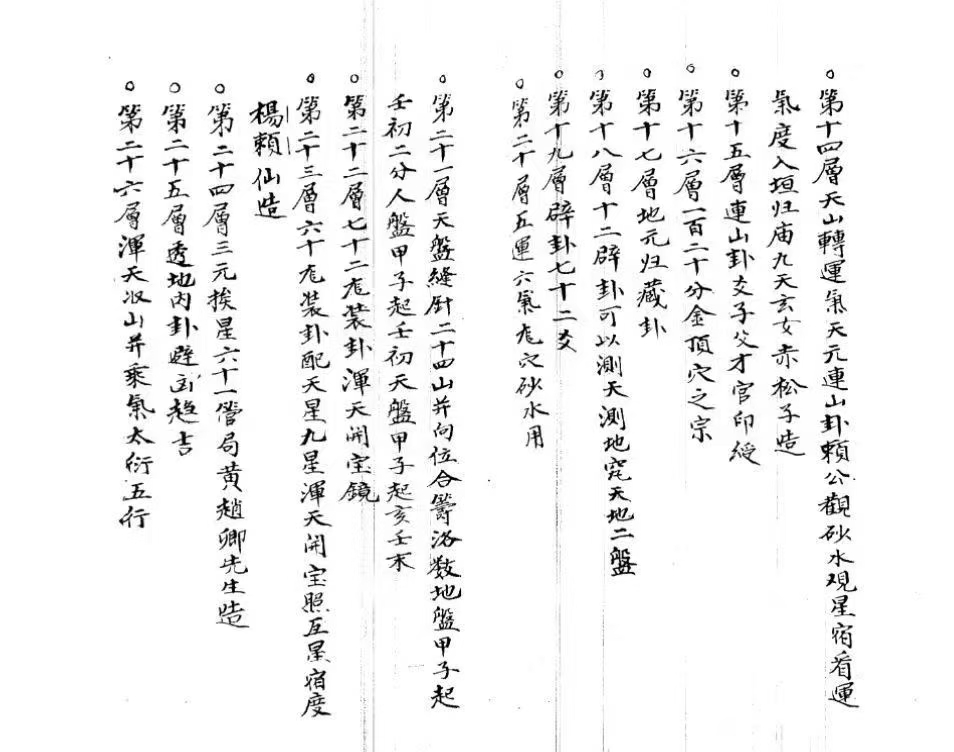 ○第十四層天山轉運氣天元連山卦賴公觀砂水观星宿看運
氣度入垣归庙九天玄女赤松子造
○第十五層連山卦爻子父才官印綬
○第十六層一百二十分金頂穴之宗
○第十七層地元归藏卦
○第十八層十二辟卦可以測天測地究天地二盤
○第十九層辟卦七十二爻
○第二十層五運六氣定穴砂水用
○第二十一層天盤縫針二十四山并向位合籌洛数地盤甲子起
壬初二分人盤甲子起壬初天盤甲子起亥壬末
○第二十二層七十二龙装卦渾天開宝鏡
○第二十三層六十龙装卦配天星九星渾天開宝照五星宿度
楊賴仙造
○第二十四層三元挨星六十一管局黄趙卿先生造
○第二十五層透地内卦避凶趋吉
○第二十六層渾天収山并乘氣太衍五行